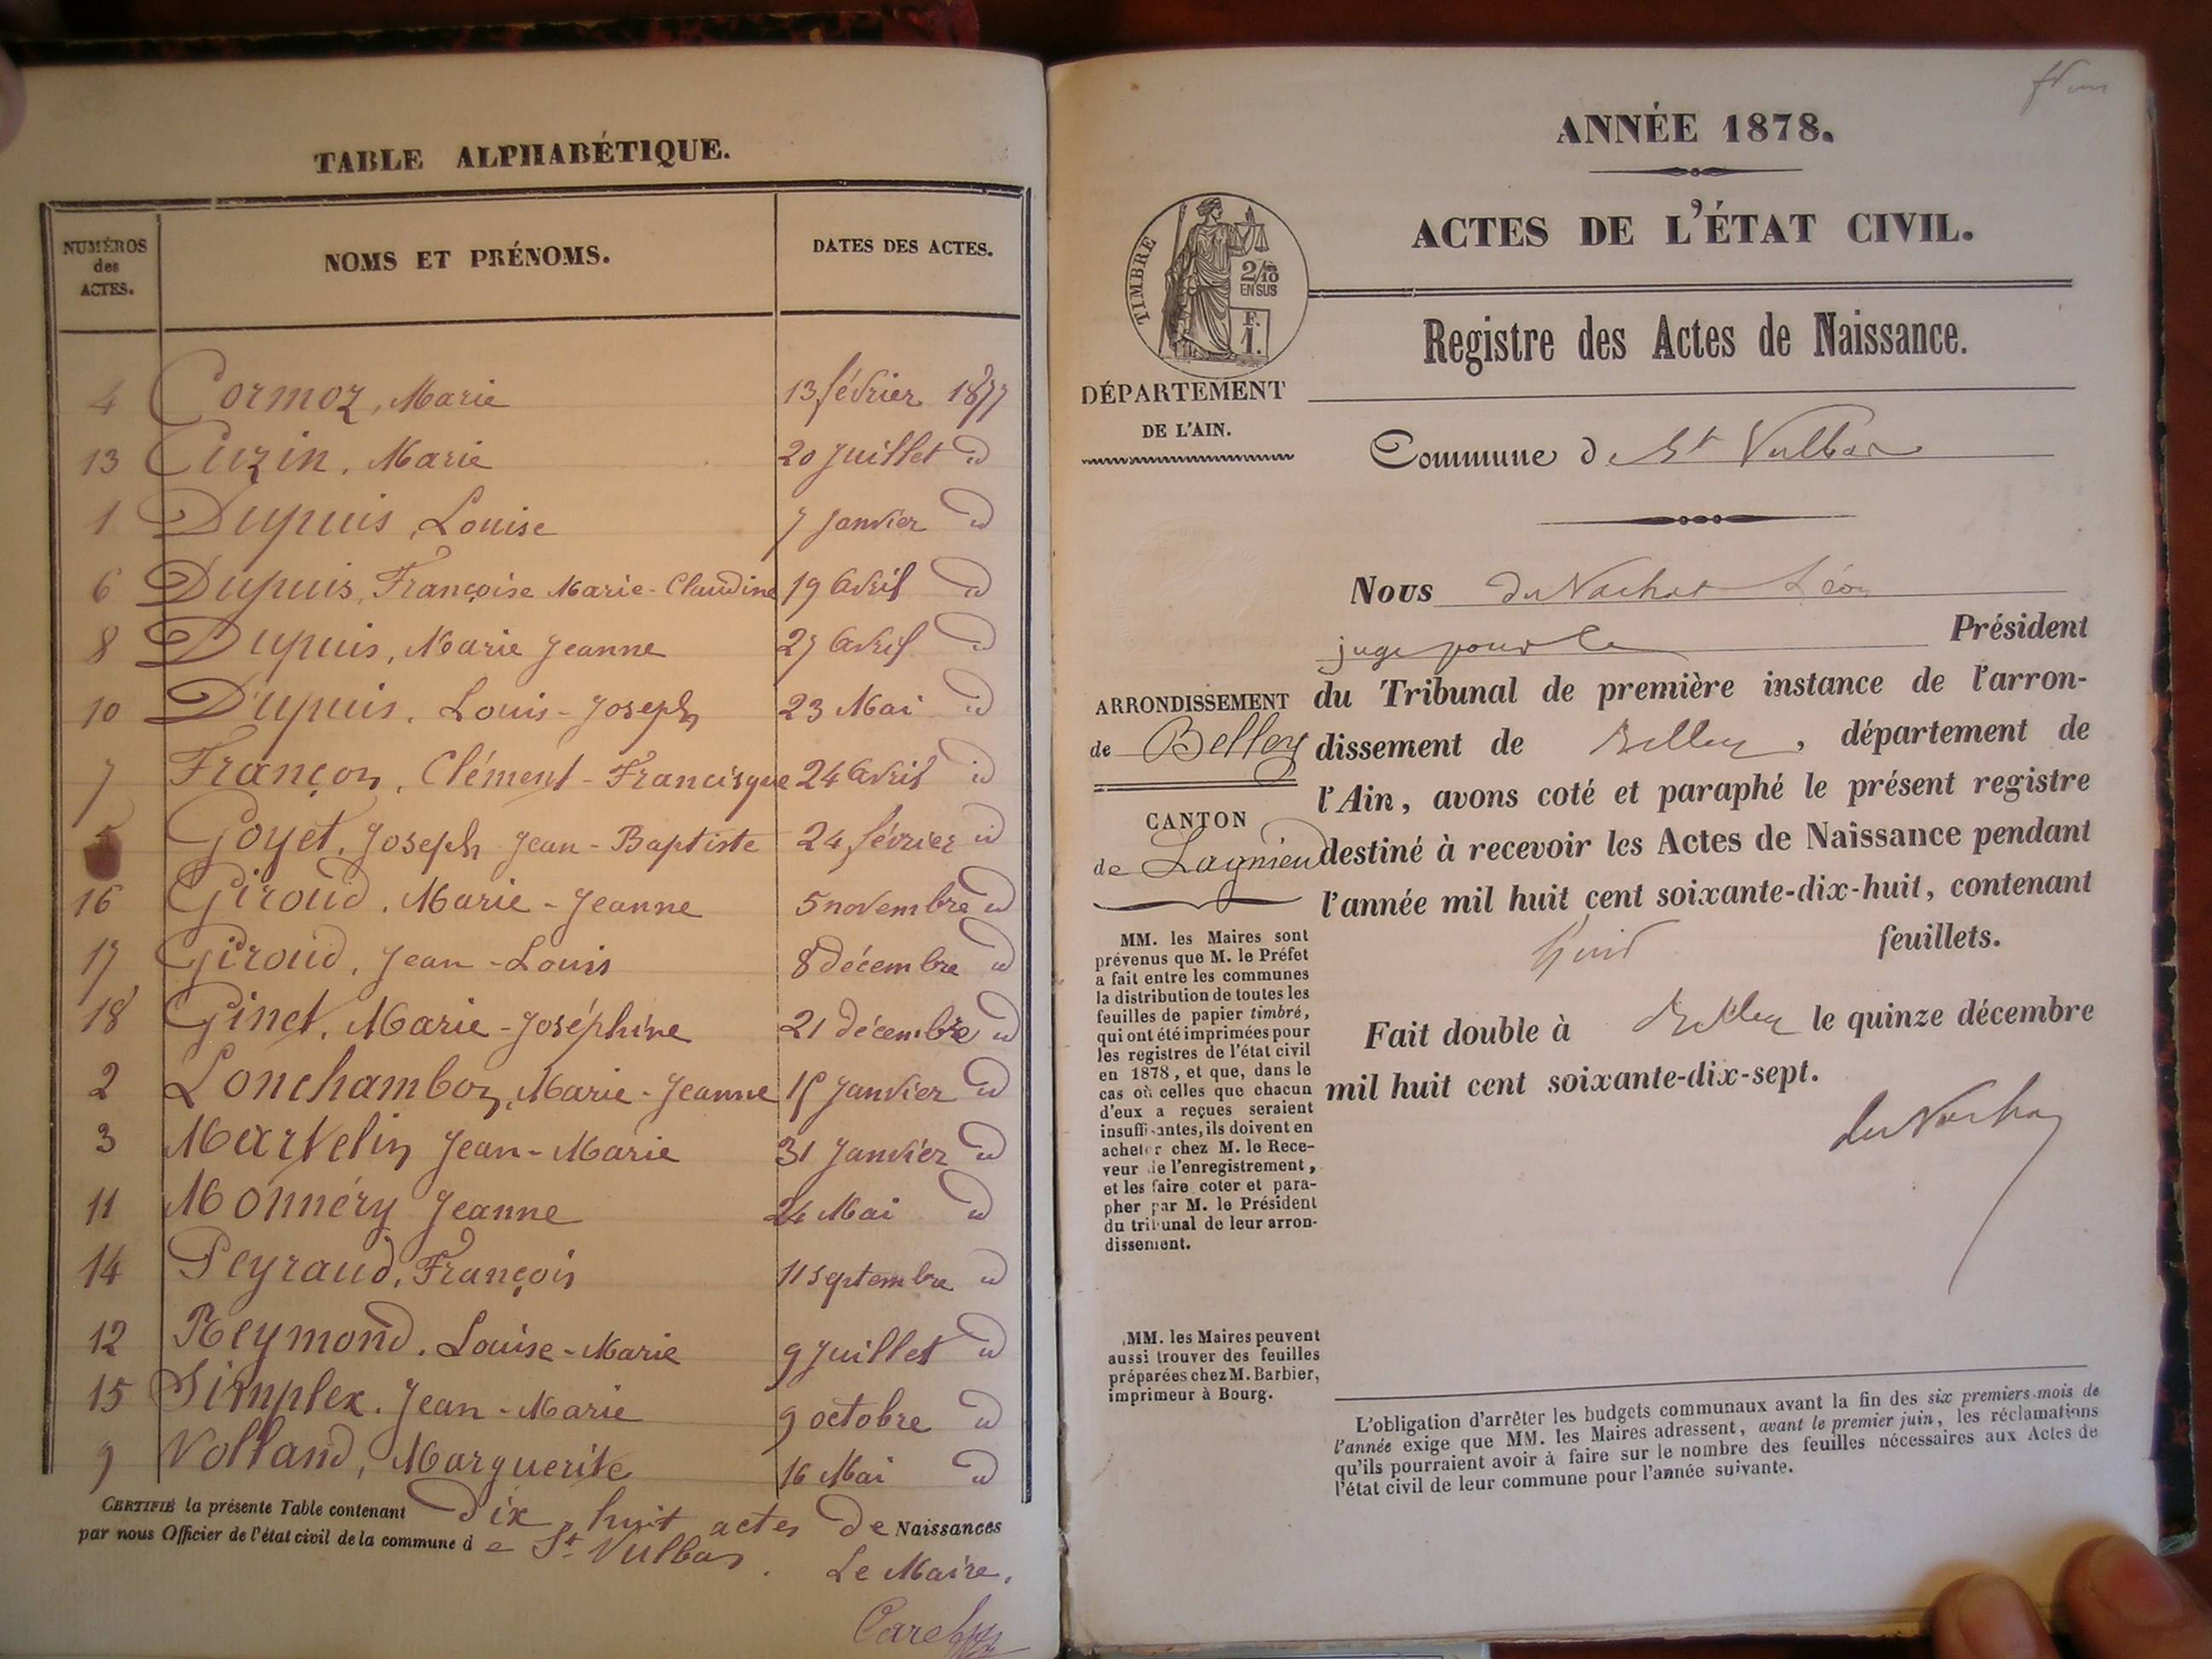 TABLE ALPHABÉTIQUE.
NUMÉROS des ACTES.
NOMS ET PRÉNOMS.
DATES DES ACTES.
4 Cormoz, Marie 13 février 1877
13 Cuzin, Marie 20 Juillet id
1 Dupuis, Louise 7 Janvier id
6 Dupuis, Françoise Marie-Claudine 19 Avril id
8 Dupuis, Marie Jeanne 27 Avril id
10 Dupuis, Louis-Joseph 23 Mai id
7 Françon, Clément-Francisque 24 Avril id
5 Goyet, Joseph Jean-Baptiste 24 février id
16 Giroud, Marie-Jeanne 5 novembre id
17 Giroud, Jean-Louis 8 décembre id
18 Ginet, Marie-Joséphine 21 décembre id
2 Lonchamboz, Marie-Jeanne Janvier id
3 Martelin Jean-Marie 31 Janvier id
11 Monnéry Jeanne 24 Mai id
14 Peyraud, François 11 septembre id
12 Reymond, Louise-Marie 9 Juillet id
15 Simplex, Jean-Marie 9 octobre id
9 Volland, Marguerite 16 Mai id
CERTIFIÉ la présente Table contenant dix-huit actes de Naissances
par nous Officier de l'état civil de la commune de St Vulbas.
Le Maire,
ANNÉE 1878.
ACTES DE L'ÉTAT CIVIL.
TIMBRE
2/10 EN SUS
F. 1.
Registre des Actes de Naissance.
DÉPARTEMENT
DE L'AIN.
Commune de St Vulbas
Nous du Vachat Léon
juge pour le Président
ARRONDISSEMENT
de Belley
CANTON
de Lagnieu
du Tribunal de première instance de l'arron-
dissement de Belley, département de
l'Ain, avons coté et paraphé le présent registre
destiné à recevoir les Actes de Naissance pendant
l'année mil huit cent soixante-dix-huit, contenant
huit feuillets.
Fait double à Belley le quinze décembre
mil huit cent soixante-dix-sept.
du Vachat
MM. les Maires sont
prévenus que M. le Préfet
a fait entre les communes
la distribution de toutes les
feuilles de papier timbré,
qui ont été imprimées pour
les registres de l'état civil
en 1878, et que, dans le
cas où celles que chacun
d'eux a reçues seraient
insuffisantes, ils doivent en
acheter chez M. le Rece-
veur de l'enregistrement,
et les faire coter et para-
pher par M. le Président
du tribunal de leur arron-
dissement.
MM. les Maires peuvent
aussi trouver des feuilles
préparées chez M. Barbier,
imprimeur à Bourg.
L'obligation d'arrêter les budgets communaux avant la fin des six premiers mois de
l'année exige que MM. les Maires adressent, avant le premier juin, les réclamations
qu'ils pourraient avoir à faire sur le nombre des feuilles nécessaires aux Actes de
l'état civil de leur commune pour l'année suivante.